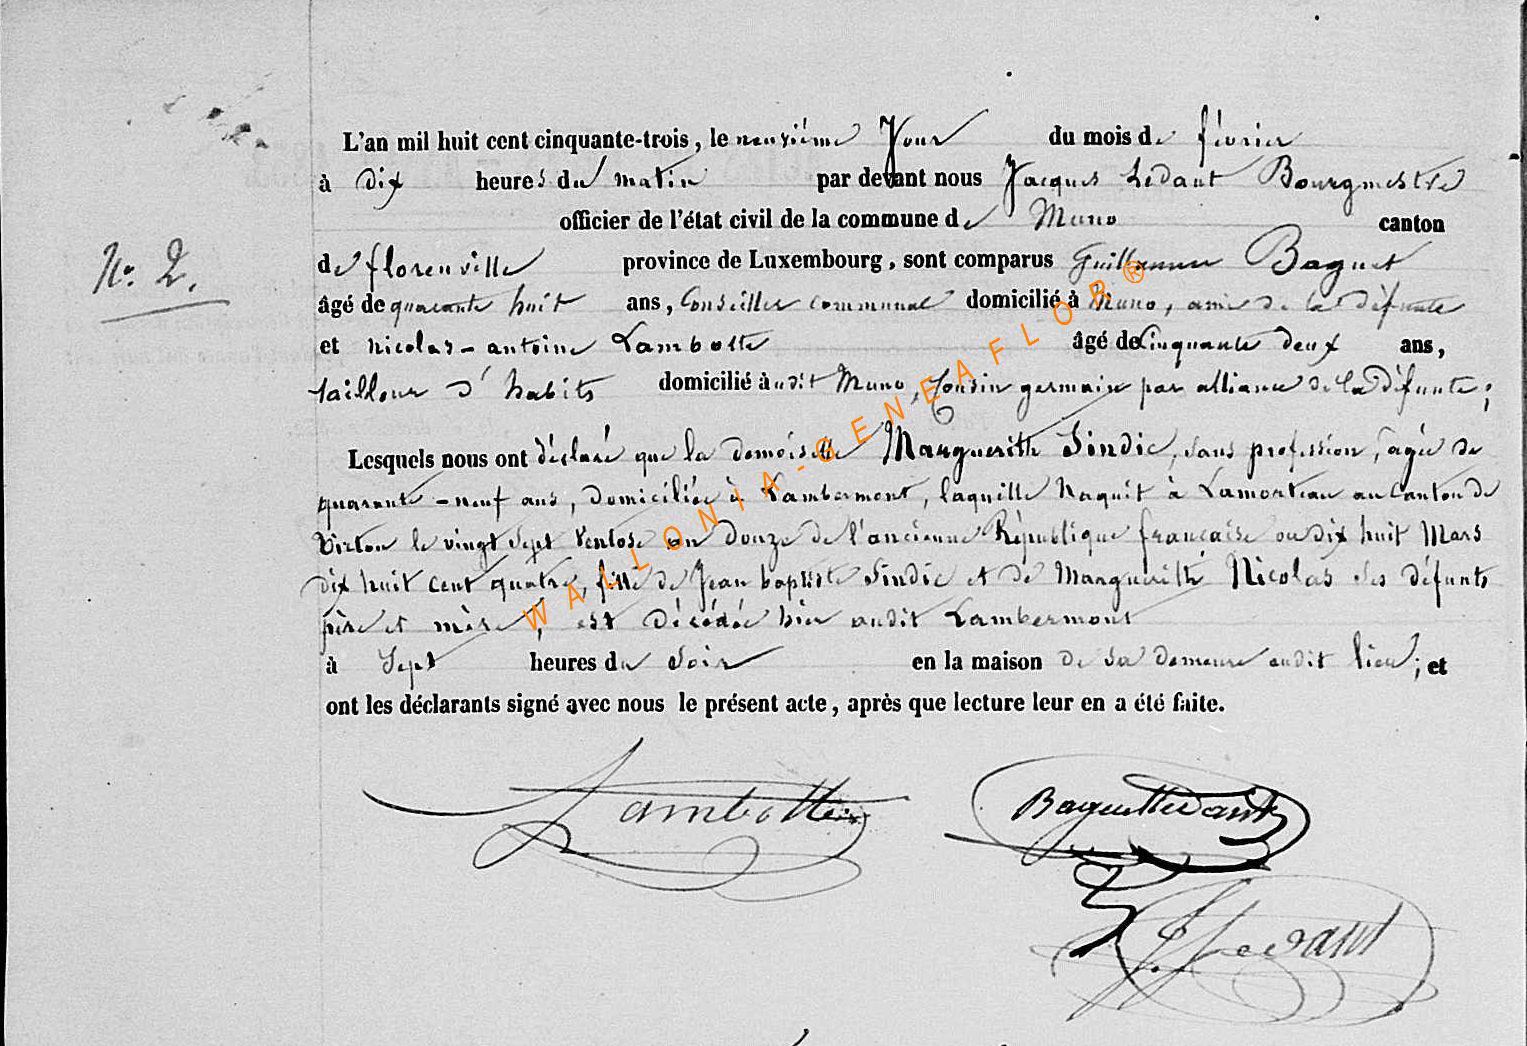 L'an mil huit cent cinquante-trois, le neuvième Jour du mois de février
à dix heures du matin par devant nous Jacques Ledant Bourgmestre
officier de l'état civil de la commune de Muno canton
de florenville province de Luxembourg, sont comparus Guillaume Baguet
N° 2.
âgé de quarante huit ans, Conseiller communal domicilié à Muno, ami de la défunte
et nicolas-antoine Lambotte âgé de Cinquante deux ans,
tailleur d'habits domicilié audit Muno, Cousin germain par alliance de la défunte;
Lesquels nous ont déclaré que la demoiselle Marguerith Sindic, sans profession, agée de
quarante-neuf ans, domiciliée à Lambermont, laquille Naquit à Lamorteau au Canton de
Virton le vingt sept Ventose an douze de l'ancienne République française ou dix huit Mars
dix huit cent quatre, fille de Jean baptiste Sindic et de Marguerith Nicolas ses défunts
père et mère, est décédée hier audit Lambermont
à Sept heures du soir en la maison de sa demeure audit lieu; et
ont les déclarants signé avec nous le présent acte, après que lecture leur en a été faite.
Lambotte Baguet
J. Ledant
WALLONIA-GENEAFLOR®